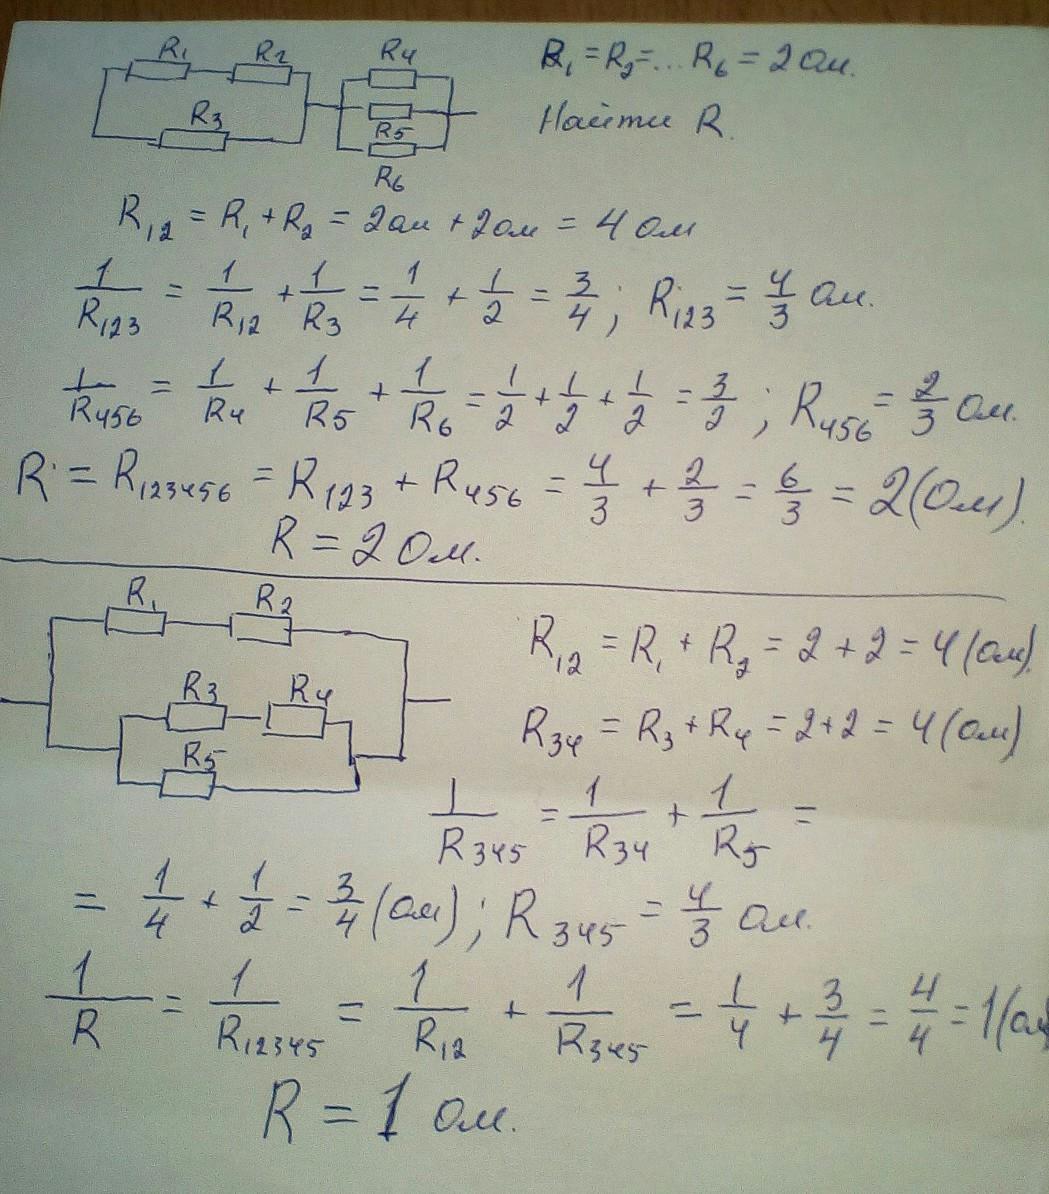 R₁ R₂ R₄
R₃ R₅
R₆
R₁ = R₂ = ... R₆ = 2 Ом.
Найти R.
R₁₂ = R₁ + R₂ = 2ом + 2ом = 4 ом
1/R₁₂₃ = 1/R₁₂ + 1/R₃ = 1/4 + 1/2 = 3/4 ; R₁₂₃ = 4/3 Ом.
1/R₄₅₆ = 1/R₄ + 1/R₅ + 1/R₆ = 1/2 + 1/2 + 1/2 = 3/2 ; R₄₅₆ = 2/3 Ом.
R = R₁₂₃₄₅₆ = R₁₂₃ + R₄₅₆ = 4/3 + 2/3 = 6/3 = 2(Ом).
R = 2 Ом.
R₁ R₂
R₃ R₄
R₅
R₁₂ = R₁ + R₂ = 2 + 2 = 4 (ом).
R₃₄ = R₃ + R₄ = 2+2 = 4 (ом)
1/R₃₄₅ = 1/R₃₄ + 1/R₅ =
= 1/4 + 1/2 = 3/4 (ом) ; R₃₄₅ = 4/3 ом.
1/R = 1/R₁₂₃₄₅ = 1/R₁₂ + 1/R₃₄₅ = 1/4 + 3/4 = 4/4 = 1(ом
R = 1 ом.